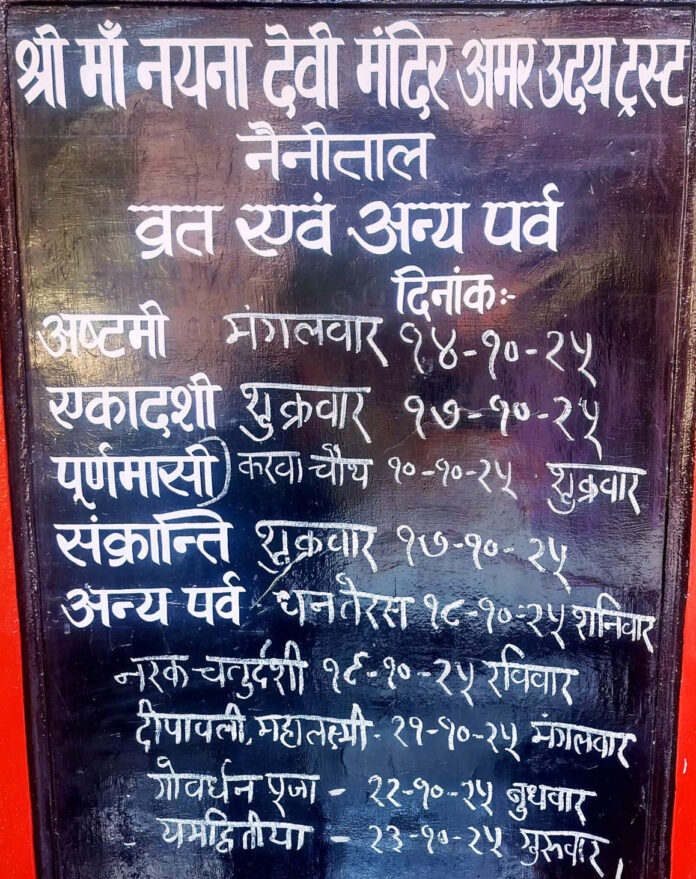 श्री माँ नयना देवी मंदिर अमर उदय ट्रस्ट
नैनीताल
व्रत एवं अन्य पर्व
दिनांकः-
अष्टमी मंगलवार १४-१०-२५
एकादशी शुक्रवार १७-१०-२५
पूर्णमासी) करवा चौथ १०-१०-२५ शुक्रवार
संक्रान्ति शुक्रवार १७-१०-२५
अन्य पर्व - धनतेरस १८-१०-२५ शनिवार
नरक चतुर्दशी १९-१०-२५ रविवार
दीपावली, महालक्ष्मी - २१-१०-२५ मंगलवार
गोवर्धन पूजा - २२-१०-२५ बुधवार
- यमद्वितीया - २३-१०-२५ गुरुवार